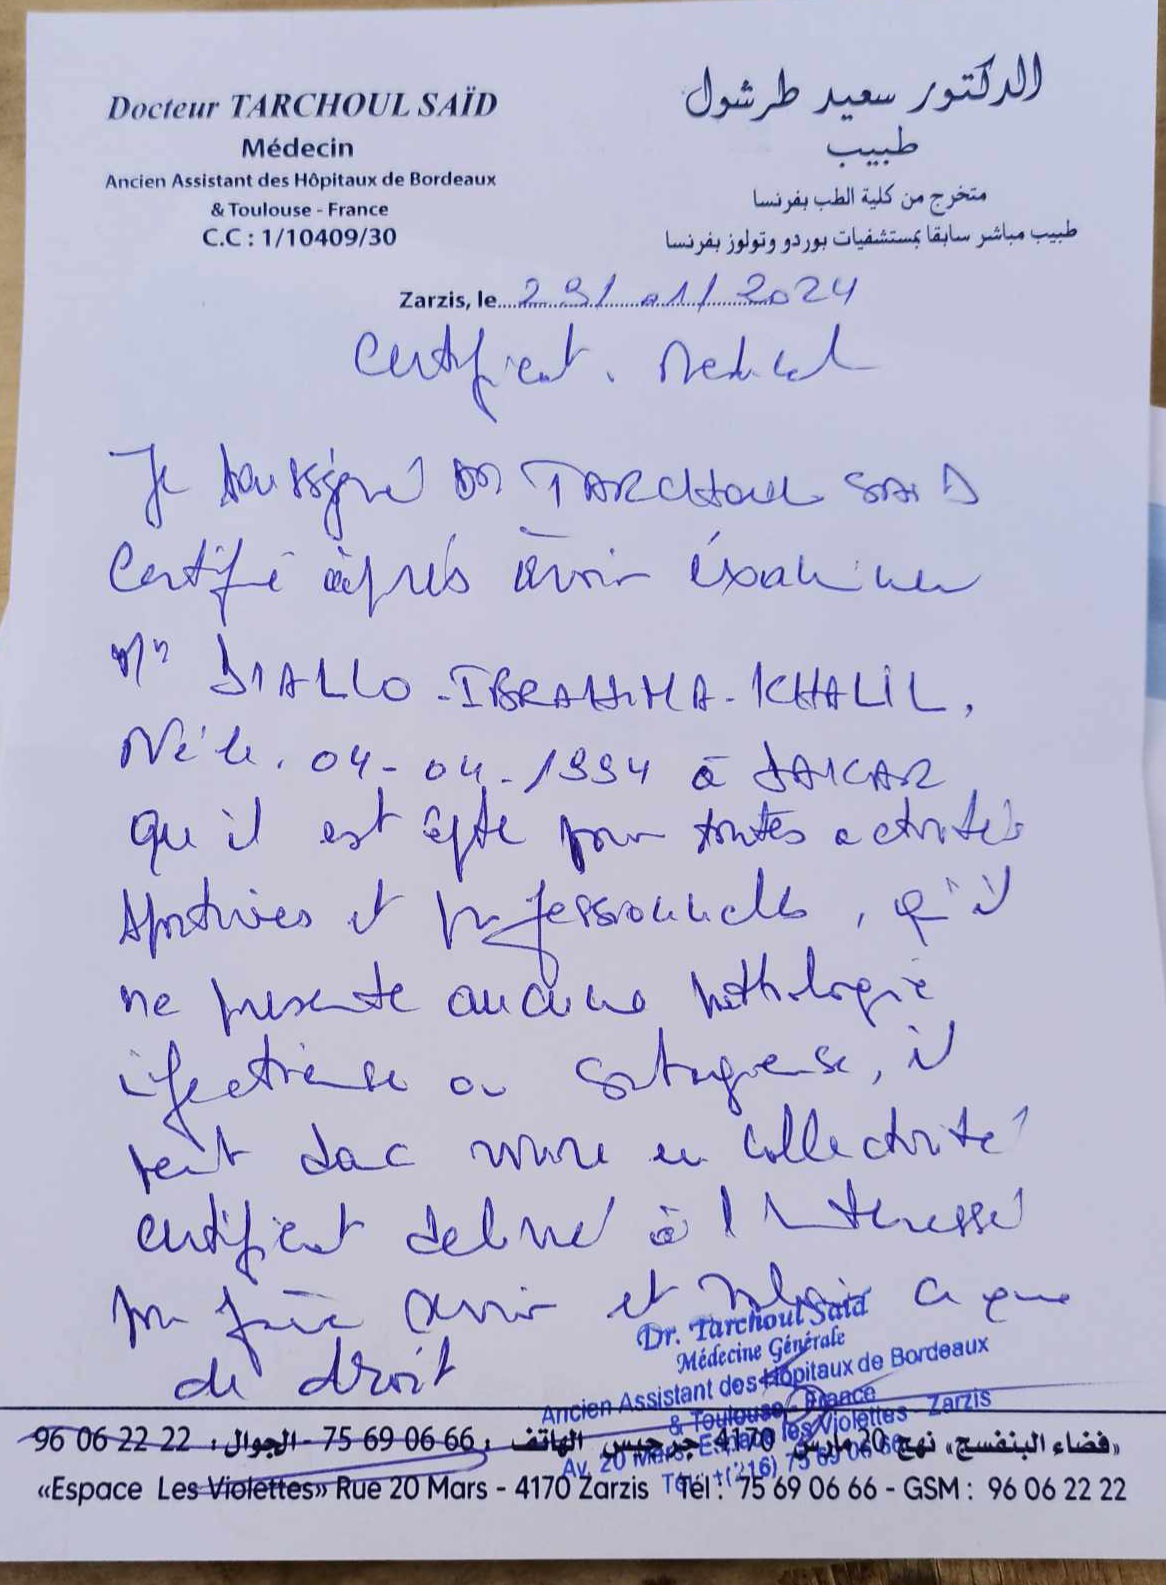 Docteur TARCHOUL SAÏD
Médecin
Ancien Assistant des Hôpitaux de Bordeaux
& Toulouse - France
C.C : 1/10409/30
الدكتور سعيد طرشول
طبيب
متخرج من كلية الطب بفرنسا
طبيب مباشر سابقا بمستشفيات بوردو وتولوز بفرنسا
Zarzis, le 29/01/2024
Certificat Medical
Je soussigné Dr TARCHOUL SAID
Certifie après avoir éxaminer
Mr DIALLO - IBRAHIMA - KHALIL,
Né le. 04-04-1994 à DAKAR
qu'il est apte pour toutes activités
sportives et professionnelles, qu'il
ne presente aucune pathologie
ifectieuse ou contagieuse, il
peut donc vivre en collectivité
certificat delivré à l'interessé
pour faire et valoir ce que
de droit
Dr. Tarchoul Saïd
Médecine Générale
Ancien Assistant des Hôpitaux de Bordeaux
& Toulouse - France
Av. 20 Mars, Espace les Violettes - Zarzis
Tél : +(216) 75 69 06 66
«فضاء البنفسج» نهج 20 مارس 4170 جرجيس الهاتف : 75 69 06 66 - الجوال : 96 06 22 22
«Espace Les Violettes» Rue 20 Mars - 4170 Zarzis Tél : 75 69 06 66 - GSM : 96 06 22 22